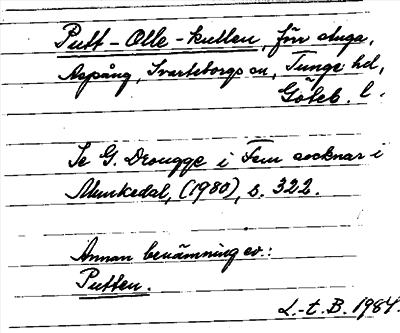 Putt-Olle-kullen, förr stuga,
Aspång, Svarteborgs sn, Tunge hd,
Göteb. l.
Se G. Drougge i Fem socknar i
Munkedal, (1980), s. 322.
Annan benämning av:
Putten.
L.-t. B. 1984.